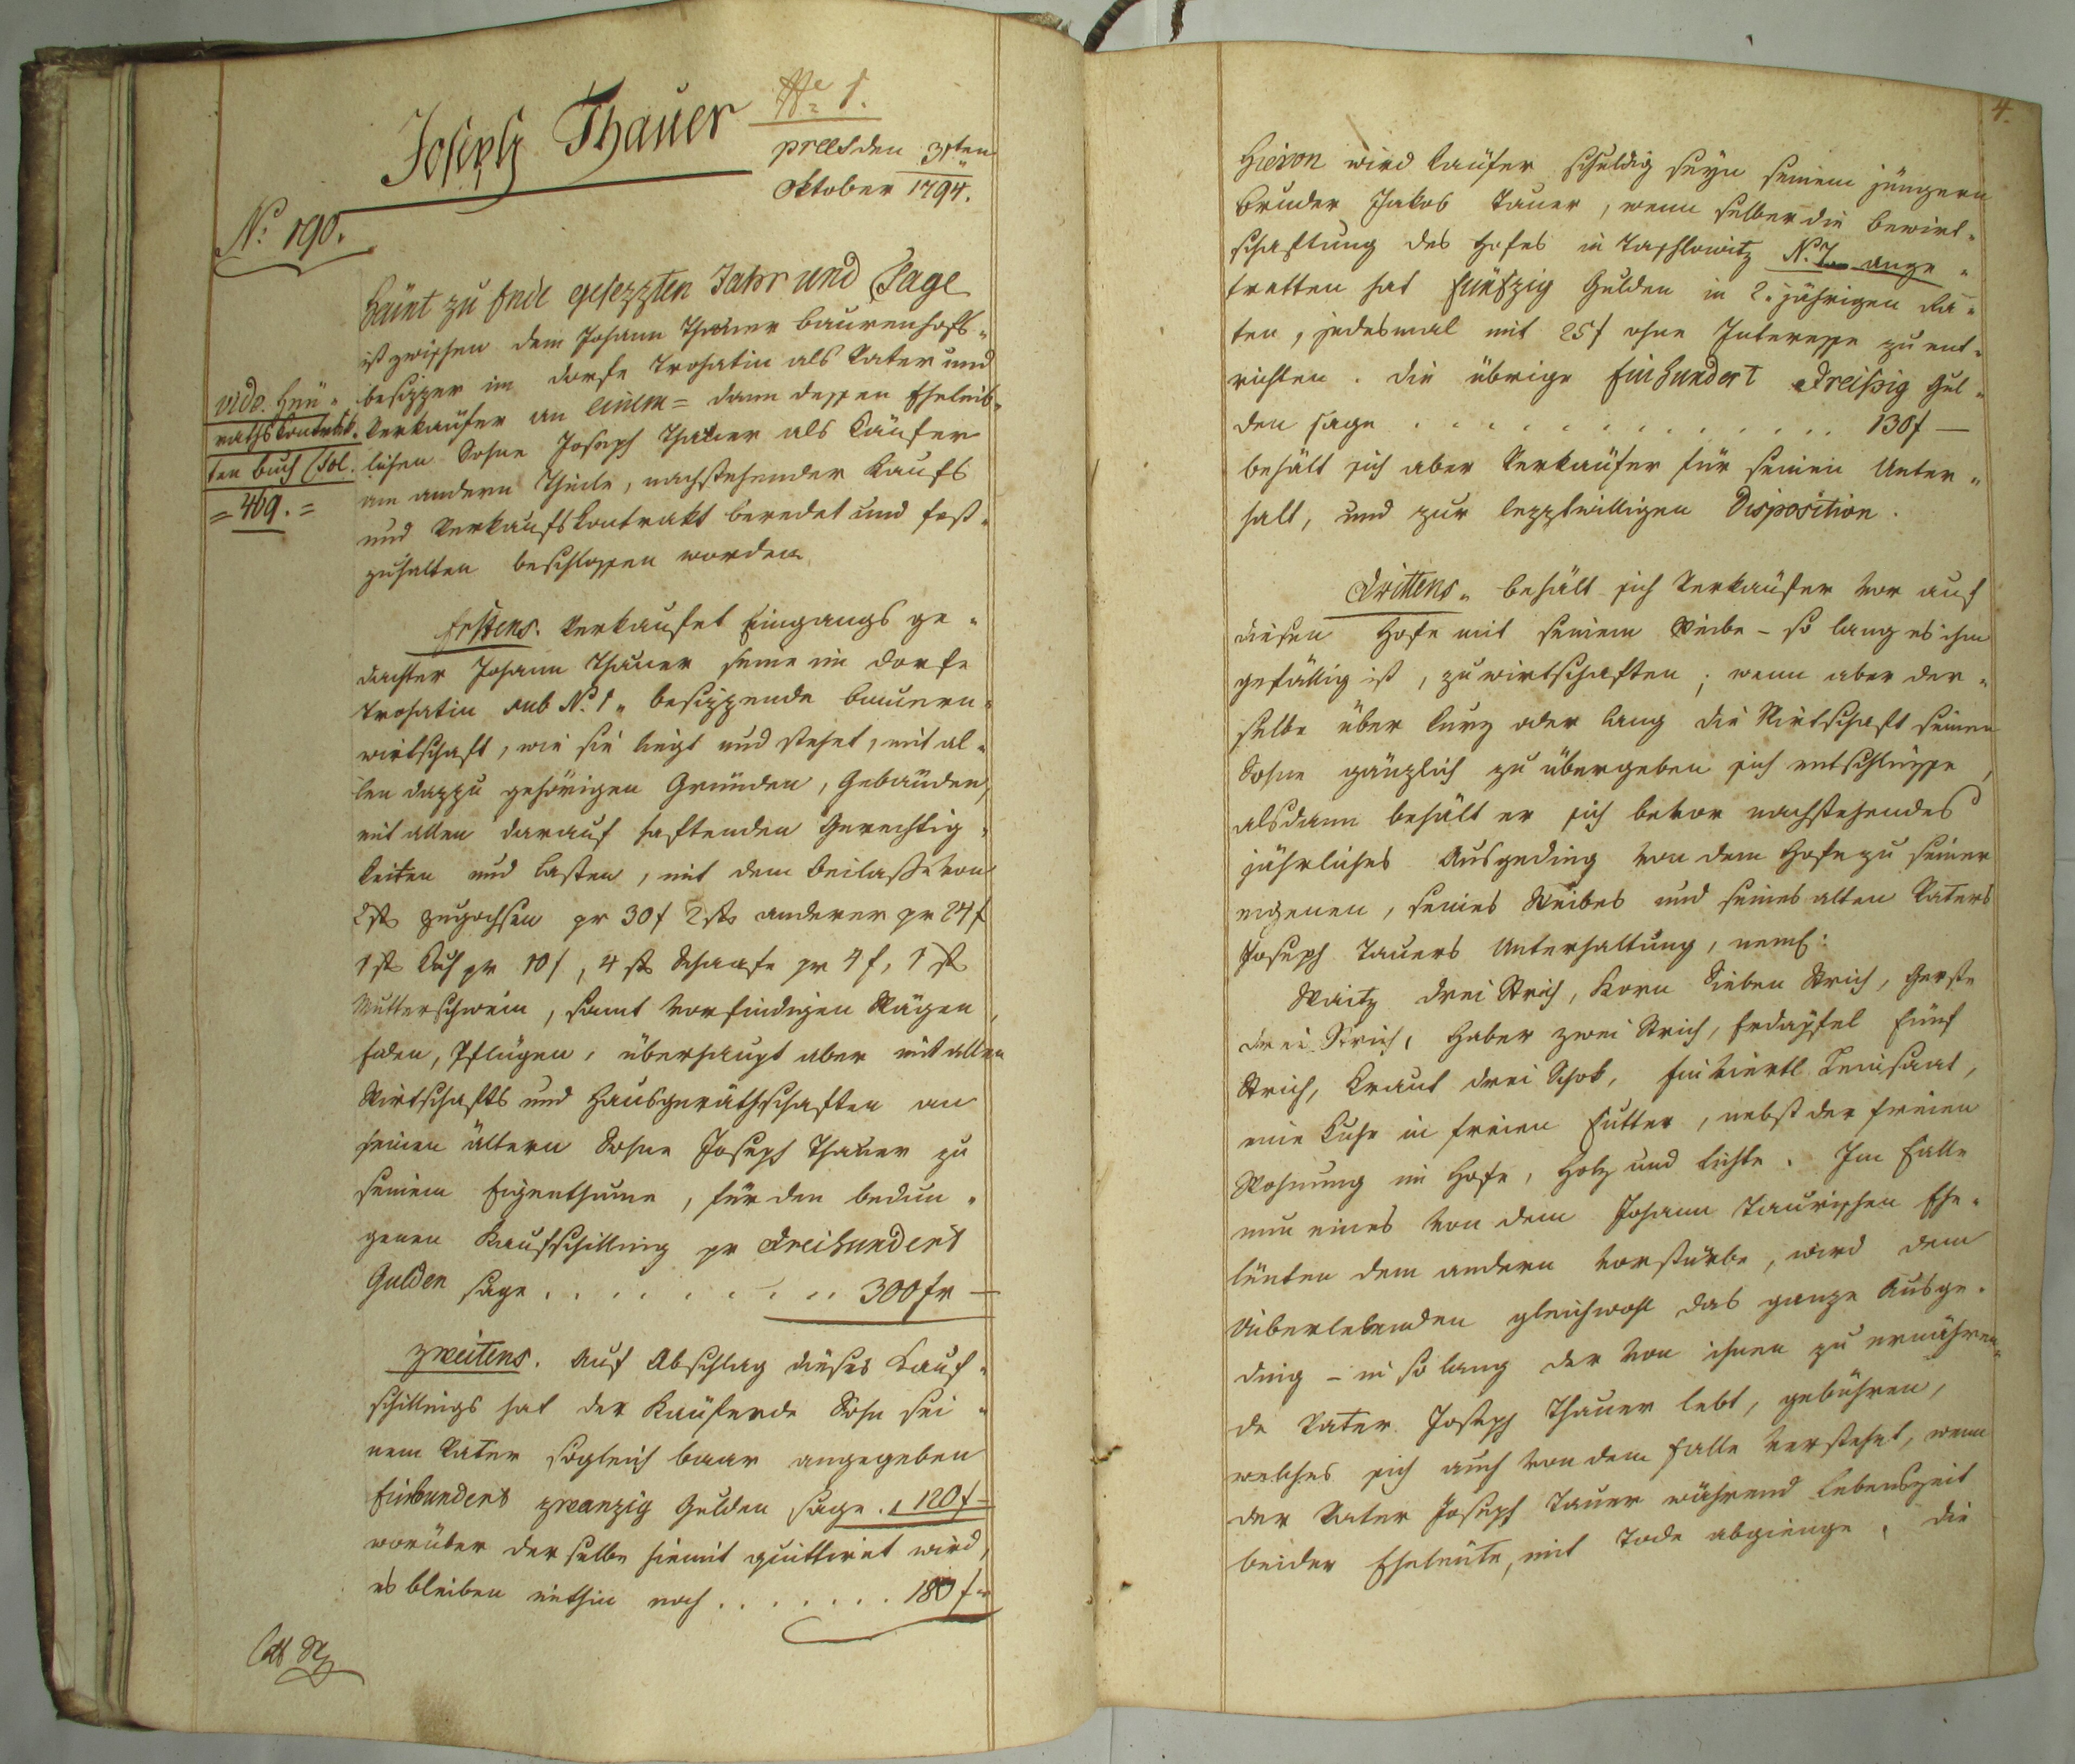 Joseph Thauer
Nr 1.
praes den 31ten
Oktober 1794.
No. 190.
Heünt zu Ende gesezzten Jahr und Tage
ist zwischen dem Johann Thauer Baurenhofs-
besizzer im Dorfe Trohatin als Vater und
Verkaüfer an einem = dann dessen Eheleib-
lichen Sohne Joseph Thauer als Käufer
am andern Theile, nachstehender Kaufs
und Verkaufskontrakt beredet und fest-
zuhalten beschlossen worden.
vido. Heü-
rathskontrak-
ten buch Fol.
= 469. =
Erstens. Verkaufet Eingangs ge-
dachter Johann Thauer seine im Dorfe
Trohatin sub No. 1 besizzende Bauern-
wirtschaft, wie sie liegt und stehet, mit al-
len dazzu gehörigen Gründen, Gebäuden,
mit allen darauf haftenden Gerechtig-
keiten und Lasten, mit dem Beilasse von
2 st. Zugochsen pr 30 f 2 st. anderer pr 24 f
1 st. Kuh pr 10 f, 4 st. Schaafe pr 4 f, 1 st.
Mutterschwein, samt vorfindigen Wägen,
Eden, Pflügen, überhaupt aber mit allen
Wirtschafts und Hausgeräthschaften an
seinen ältern Sohne Joseph Thauer zu
seinem Eigenthume, für den bedun-
genen Kaufschilling pr Dreihundert
Gulden sage . . . . . . . . 300 fr —
Zweitens. Auf Abschlag dieses Kauf-
schillings hat der Kaüfende Sohn sei-
nem Vater sogleich baar angegeben
Einhundert zwanzig Gulden sage . . 120 f —
worüber derselbe hiemit quittiret wird,
es bleiben mithin noch . . . . . . . 180 f
4.
Hievon wird Kaüfer schuldig seyn seinem jüngern
Bruder Jakob Tauer, wenn selber die Bewirt-
schaftung des Hofes in Taschlowitz No. 7 ange-
tretten hat fünfzig Gulden in 2. jährigen Ra-
ten, jedesmal mit 25 f ohne Interesse zu ent-
richten. Die übrige Einhundert Dreißig Gul-
den sage . . . . . . . . . . . . . . 130 f —
behält sich aber Verkaüfer für seinen Unter-
halt, und zur lezztwilligen Disposition.
Drittens. behält sich Verkaüfer vor auf
diesen Hofe mit seinem Weibe - so lang es ihm
gefällig ist, zu wirtschaften; wenn aber der-
selbe über kurz oder lang die Wirtschaft seinen
Sohne gänzlich zu übergeben sich entschlüsse,
alsdann behält er sich bevor nachstehendes
jährliches Ausgeding von dem Hofe zu seiner
eigenen, seines Weibes und seines alten Vaters
Joseph Tauers Unterhaltung, neml:
Waitz drei Strich, Korn Sieben Strich, Gerste
drei Strich, Haber zwei Strich, Erdäpfel fünf
Strich, Kraut drei Schok, Ein viertl Leinsaat,
eine Kuhe in freien Futter, nebst der freien
Wohnung im Hofe, Holz und Lichte. Im Falle
nun eines von dem Johann Taurischen Ehe-
leüten dem andern vorstürbe, wird dem
Uiberlebenden gleichwohl das ganze Ausge-
ding - in so lang der von ihnen zu ernähren-
de Vater Joseph Thauer lebt, gebühren,
welches sich auch von dem Falle verstehet, wenn
der Vater Joseph Tauer während Lebenszeit
beider Eheleüte, mit Tode abgienge. Die